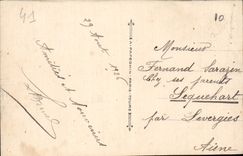 41
10
29 Août 1926
Amitiés et Souvenirs
Monsieur
Fernand Sarazin
Chez ses parents
Lequehart
par Levergies
Aisne